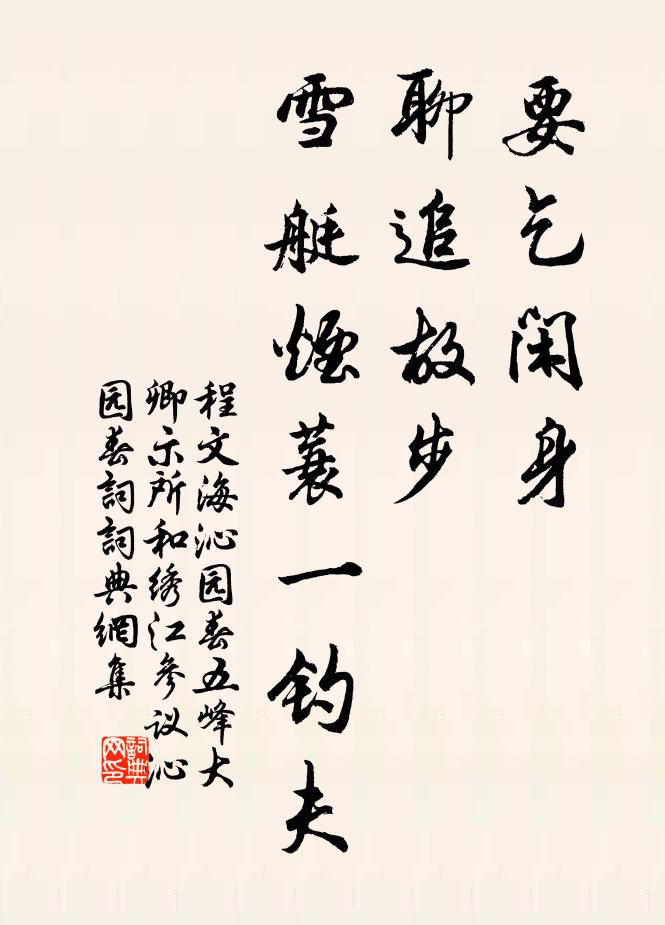 要乞闲身
聊追故步
雪艇煙蓑一钓夫
程文海沁园春五峰大
卿示所和绣江参议沁
园春詞詞典網集
詞典网印